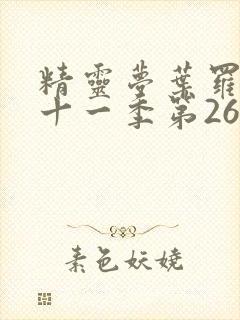 精靈夢葉羅
十一季第26
素色妖嬈